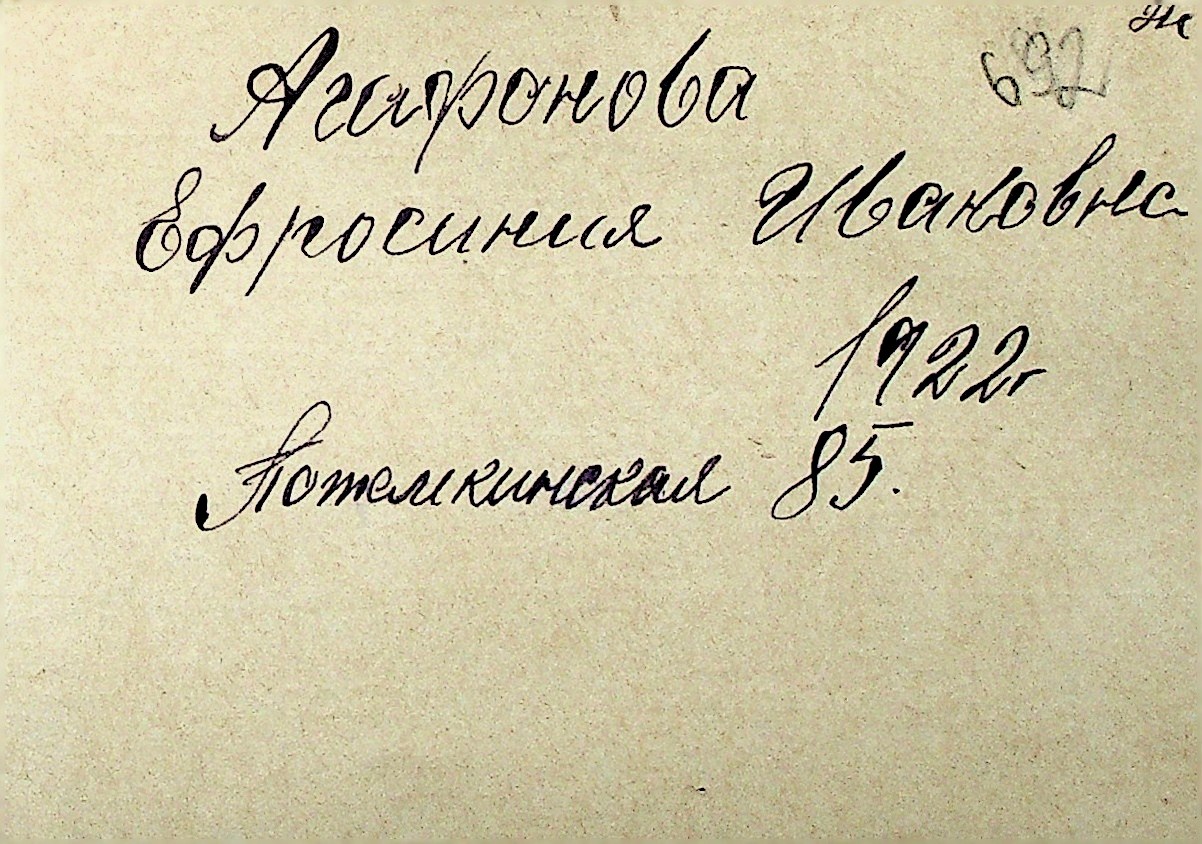 692
Агафонова
Ефросиния Ивановна
1922г
Потемкинская 85.